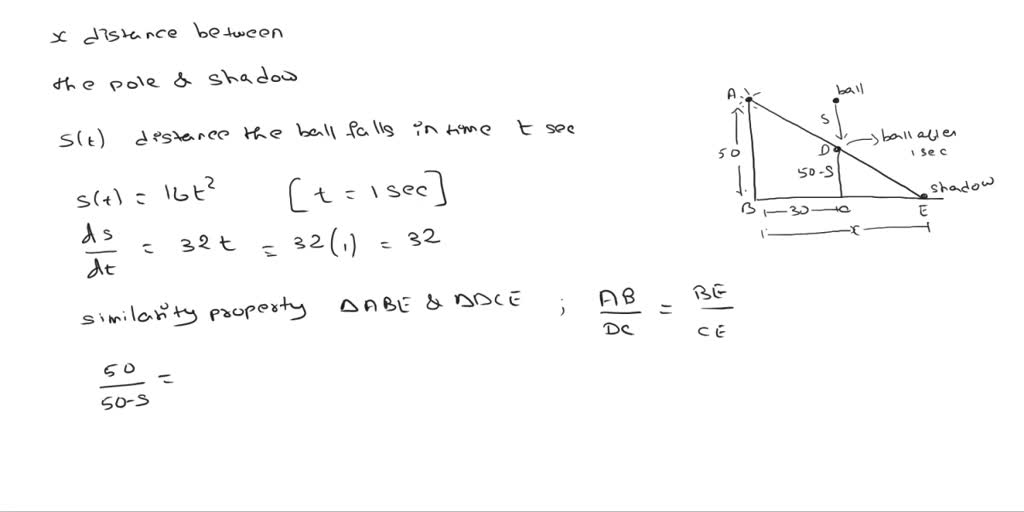 x distance between
the pole & shadow
s(t) distance the ball falls in time t sec
s(t) = 16t² [t = 1 sec]
ds/dt = 32t = 32(1) = 32
similarity property ΔABE & ΔDCE ; AB/DC = BE/CE
50/50-S =
A
ball
S
50
D
ball after
1 sec
50-S
shadow
B
30
C
E
x